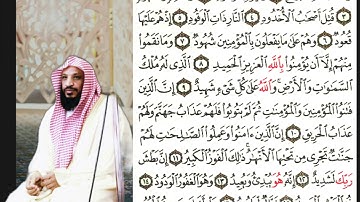 قُتِلَ أَصْحَٰبُ ٱلْأُخْدُودِ ٤ ٱلنَّارِ ذَاتِ ٱلْوَقُودِ ٥ إِذْ هُمْ عَلَيْهَا
قُعُودٌ ٦ وَهُمْ عَلَىٰ مَا يَفْعَلُونَ بِٱلْمُؤْمِنِينَ شُهُودٌ ٧ وَمَا نَقَمُوا۟
مِنْهُمْ إِلَّآ أَن يُؤْمِنُوا۟ بِٱللَّهِ ٱلْعَزِيزِ ٱلْحَمِيدِ ٨ ٱلَّذِى لَهُۥ مُلْكُ
ٱلسَّمَٰوَٰتِ وَٱلْأَرْضِ وَٱللَّهُ عَلَىٰ كُلِّ شَىْءٍ شَهِيدٌ ٩ إِنَّ ٱلَّذِينَ
فَتَنُوا۟ ٱلْمُؤْمِنِينَ وَٱلْمُؤْمِنَٰتِ ثُمَّ لَمْ يَتُوبُوا۟ فَلَهُمْ عَذَابُ جَهَنَّمَ وَلَهُمْ
عَذَابُ ٱلْحَرِيقِ ١٠ إِنَّ ٱلَّذِينَ ءَامَنُوا۟ وَعَمِلُوا۟ ٱلصَّٰلِحَٰتِ لَهُمْ
جَنَّٰتٌ تَجْرِى مِن تَحْتِهَا ٱلْأَنْهَٰرُ ذَٰلِكَ ٱلْفَوْزُ ٱلْكَبِيرُ ١١ إِنَّ بَطْشَ
رَبِّكَ لَشَدِيدٌ ١٢ إِنَّهُۥ هُوَ يُبْدِئُ وَيُعِيدُ ١٣ وَهُوَ ٱلْغَفُورُ ٱلْوَدُودُ ١٤